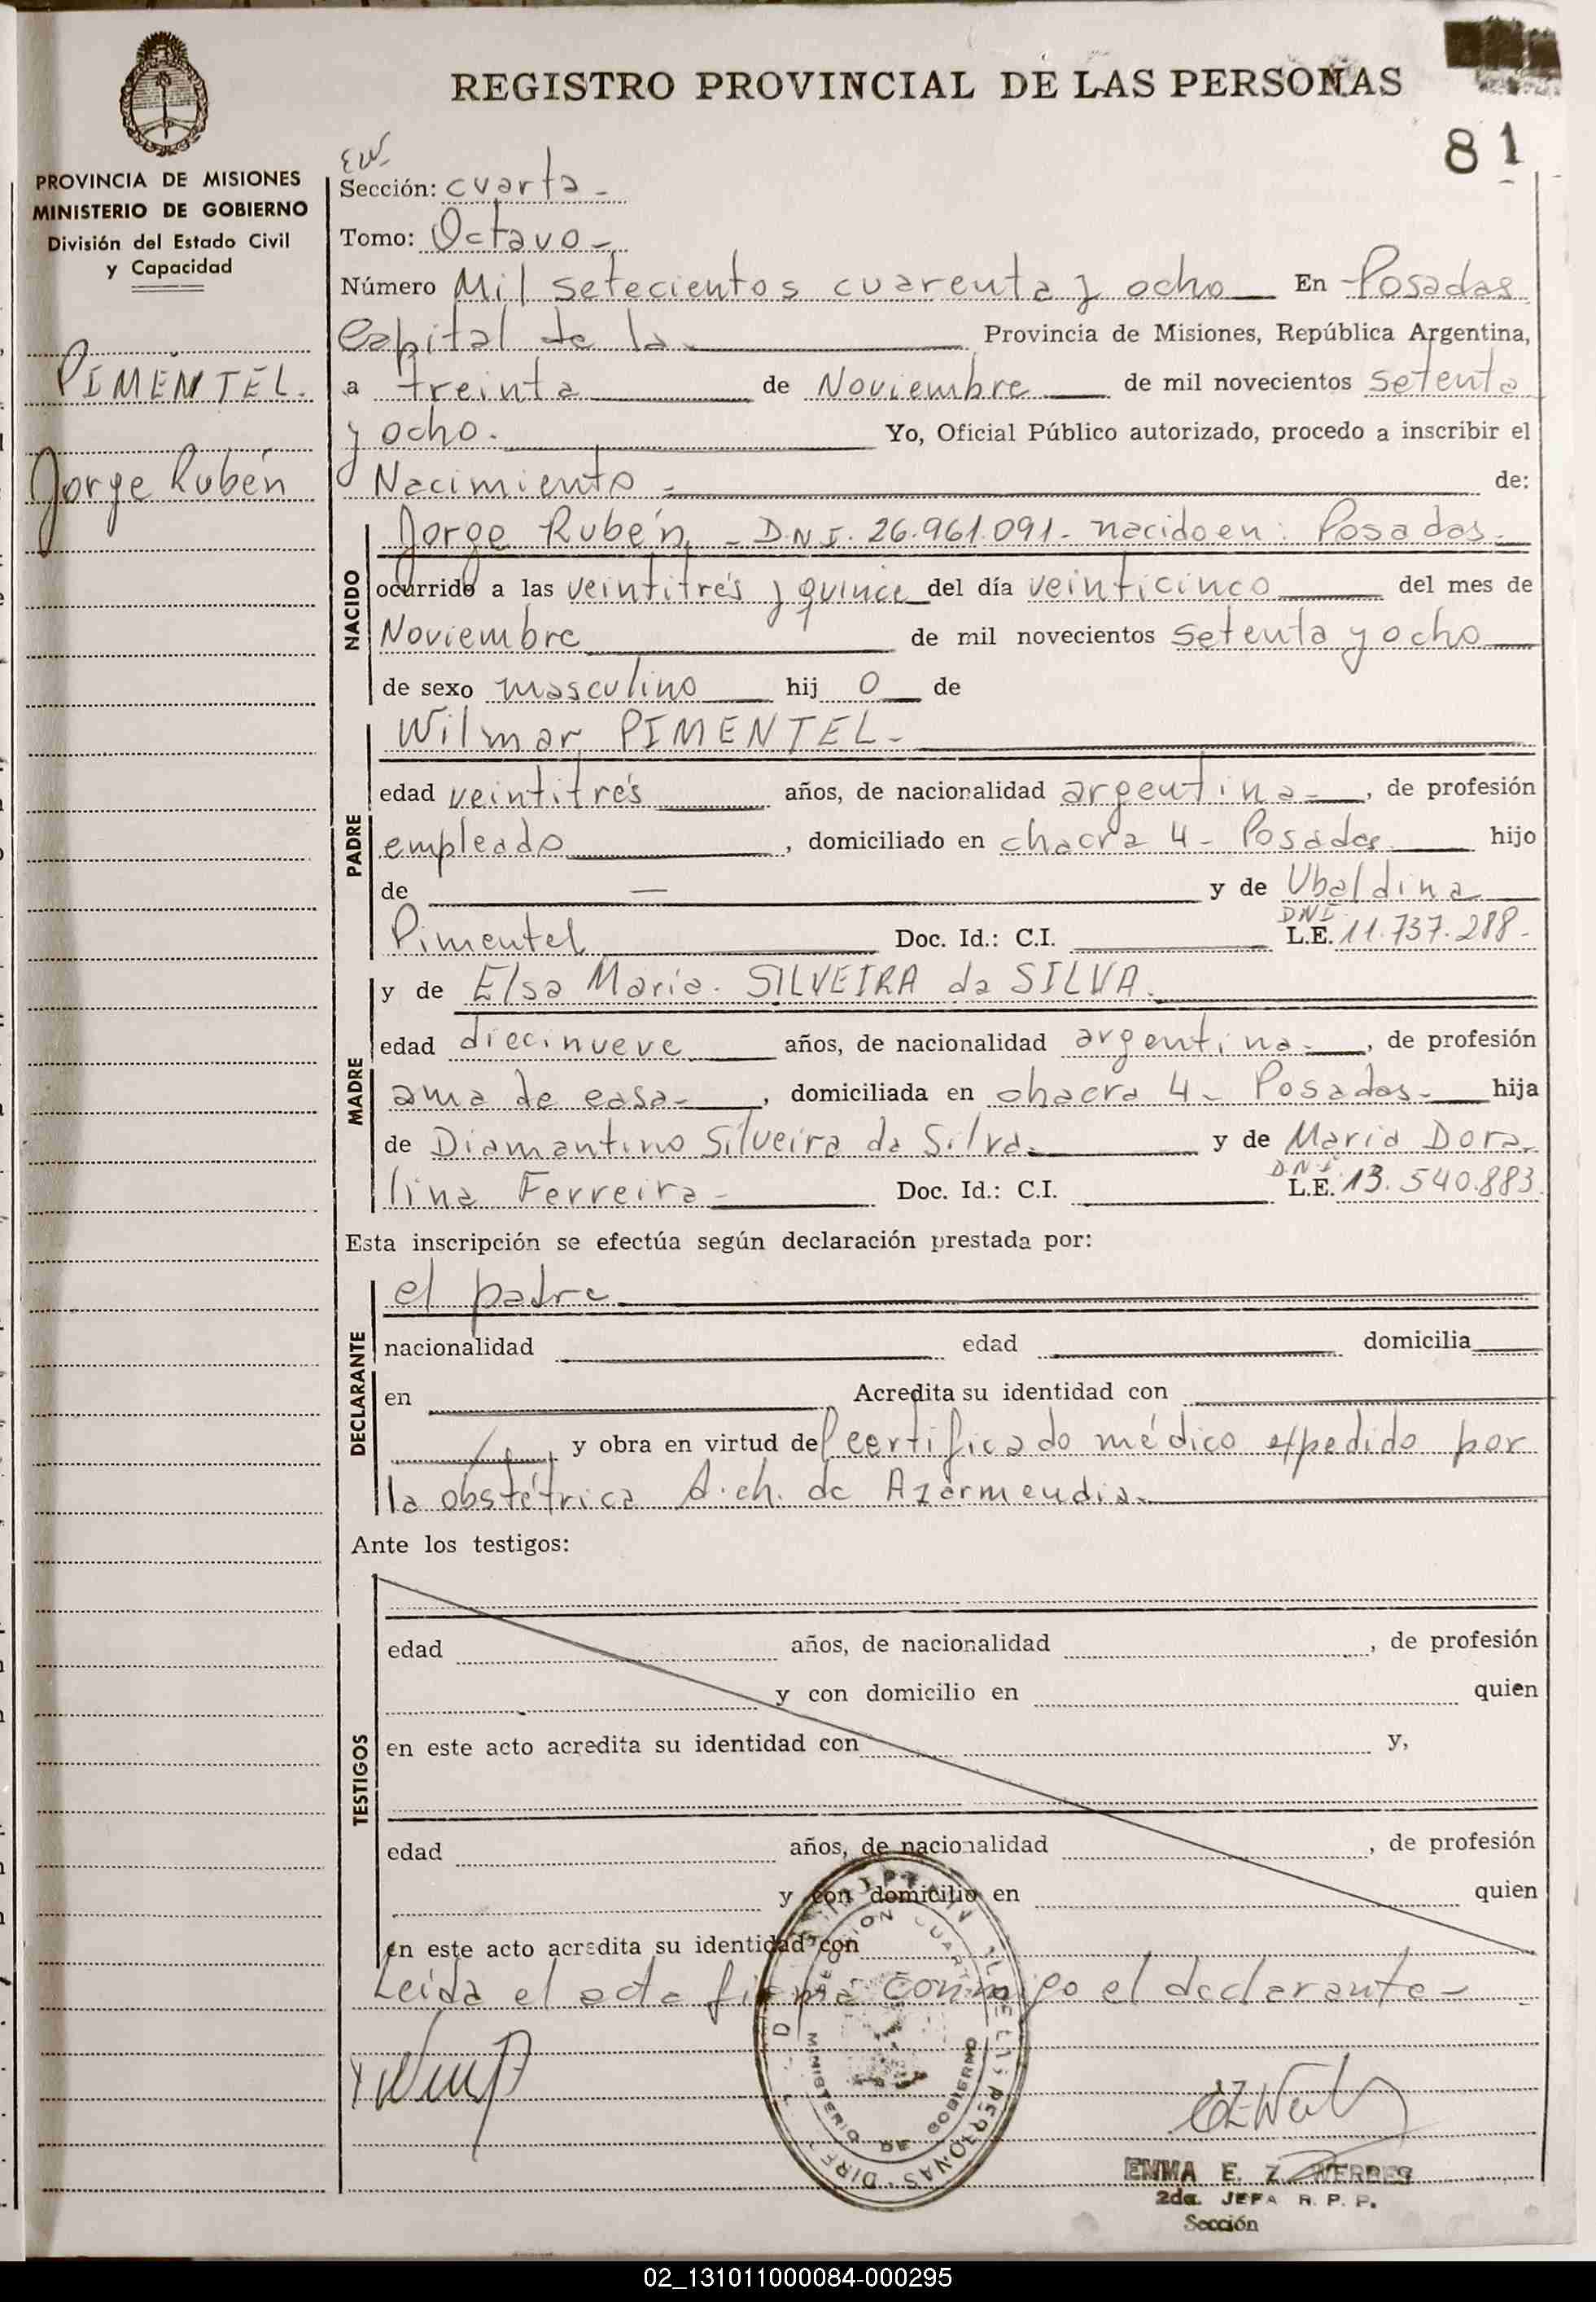 REGISTRO PROVINCIAL DE LAS PERSONAS
81
PROVINCIA DE MISIONES
MINISTERIO DE GOBIERNO
División del Estado Civil
y Capacidad
PIMENTEL.
Jorge Rubén
EW
Sección: cuarta -
Tomo: Octavo -
Número Mil setecientos cuarenta y ocho En Posadas
Capital de la Provincia de Misiones, República Argentina,
a treinta de Noviembre de mil novecientos setenta
y ocho. Yo, Oficial Público autorizado, procedo a inscribir el
Nacimiento - de:
NACIDO
Jorge Rubén - D.N.I. 26.961.091 - nacido en: Posadas -
ocurrido a las veintitrés y quince del día veinticinco del mes de
Noviembre de mil novecientos setenta y ocho
de sexo masculino hij o de
PADRE
Wilmar PIMENTEL -
edad veintitrés años, de nacionalidad argentina - , de profesión
empleado , domiciliado en chacra 4 - Posadas hijo
de — y de Ubaldina
DNI
Pimentel Doc. Id.: C.I. L.E. 11.737.288 -
MADRE
y de Elsa María. SILVEIRA da SILVA.
edad diecinueve años, de nacionalidad argentina - , de profesión
ama de casa - , domiciliada en chacra 4 - Posadas - hija
de Diamantino Silveira da Silva - y de María Dora-
D.N.I.
lina Ferreira - Doc. Id.: C.I. L.E. 13.540.883
Esta inscripción se efectúa según declaración prestada por:
DECLARANTE
el padre
nacionalidad edad domicilia
en Acredita su identidad con
y obra en virtud del certificado médico expedido por
la obstétrica A. ch. de Azarmendia -
Ante los testigos:
TESTIGOS
edad años, de nacionalidad , de profesión
y con domicilio en quien
en este acto acredita su identidad con y,
edad años, de nacionalidad , de profesión
y con domicilio en quien
en este acto acredita su identidad con
Leída el acta firma conmigo el declarante -
SECCION CUARTA
MINISTERIO DE GOBIERNO
EMMA E. Z. WERBES
2da. JEFA R. P. P.
Sección
02_131011000084-000295